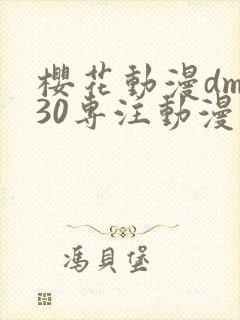 櫻花動漫dm
30專注動漫
馮貝堡